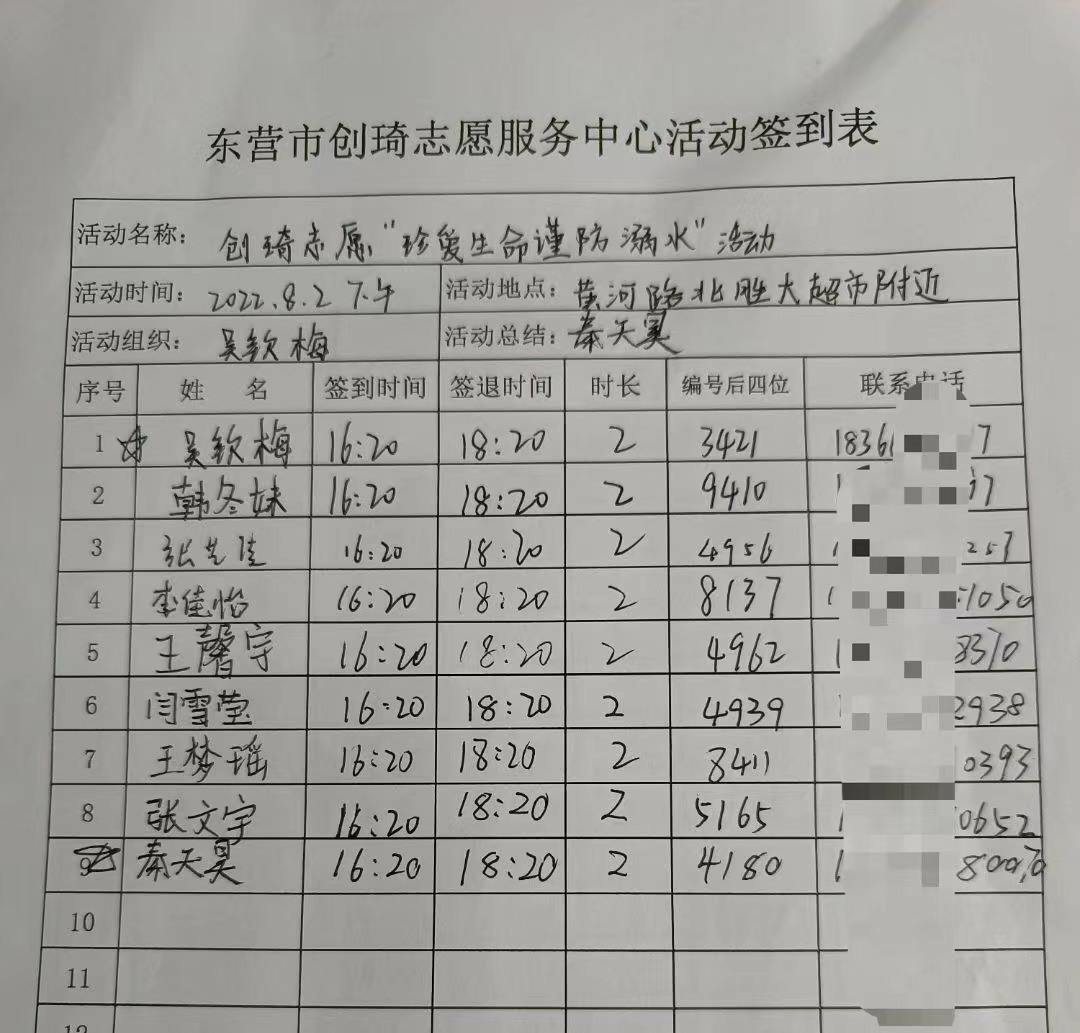 东营市创琦志愿服务中心活动签到表
活动名称： 创琦志愿“珍爱生命谨防溺水”活动
活动时间： 2022.8.2 下午 活动地点： 黄河路北胜大超市附近
活动组织： 吴钦梅 活动总结： 秦天昊
序号 姓 名 签到时间 签退时间 时长 编号后四位 联系电话
1 ☆ 吴钦梅 16:20 18:20 2 3421 1836 7
2 韩冬妹 16:20 18:20 2 9410 1 37
3 张 佳 16:20 18:20 2 4956 1 257
4 李佳怡 16:20 18:20 2 8137 1 1050
5 王馨宇 16:20 18:20 2 4962 1 8370
6 闫雪莹 16:20 18:20 2 4939 2938
7 王梦瑶 16:20 18:20 2 8411 0393
8 张文宇 16:20 18:20 2 5165 1 0652
9 秦天昊 16:20 18:20 2 4180 1 800
10
11
12